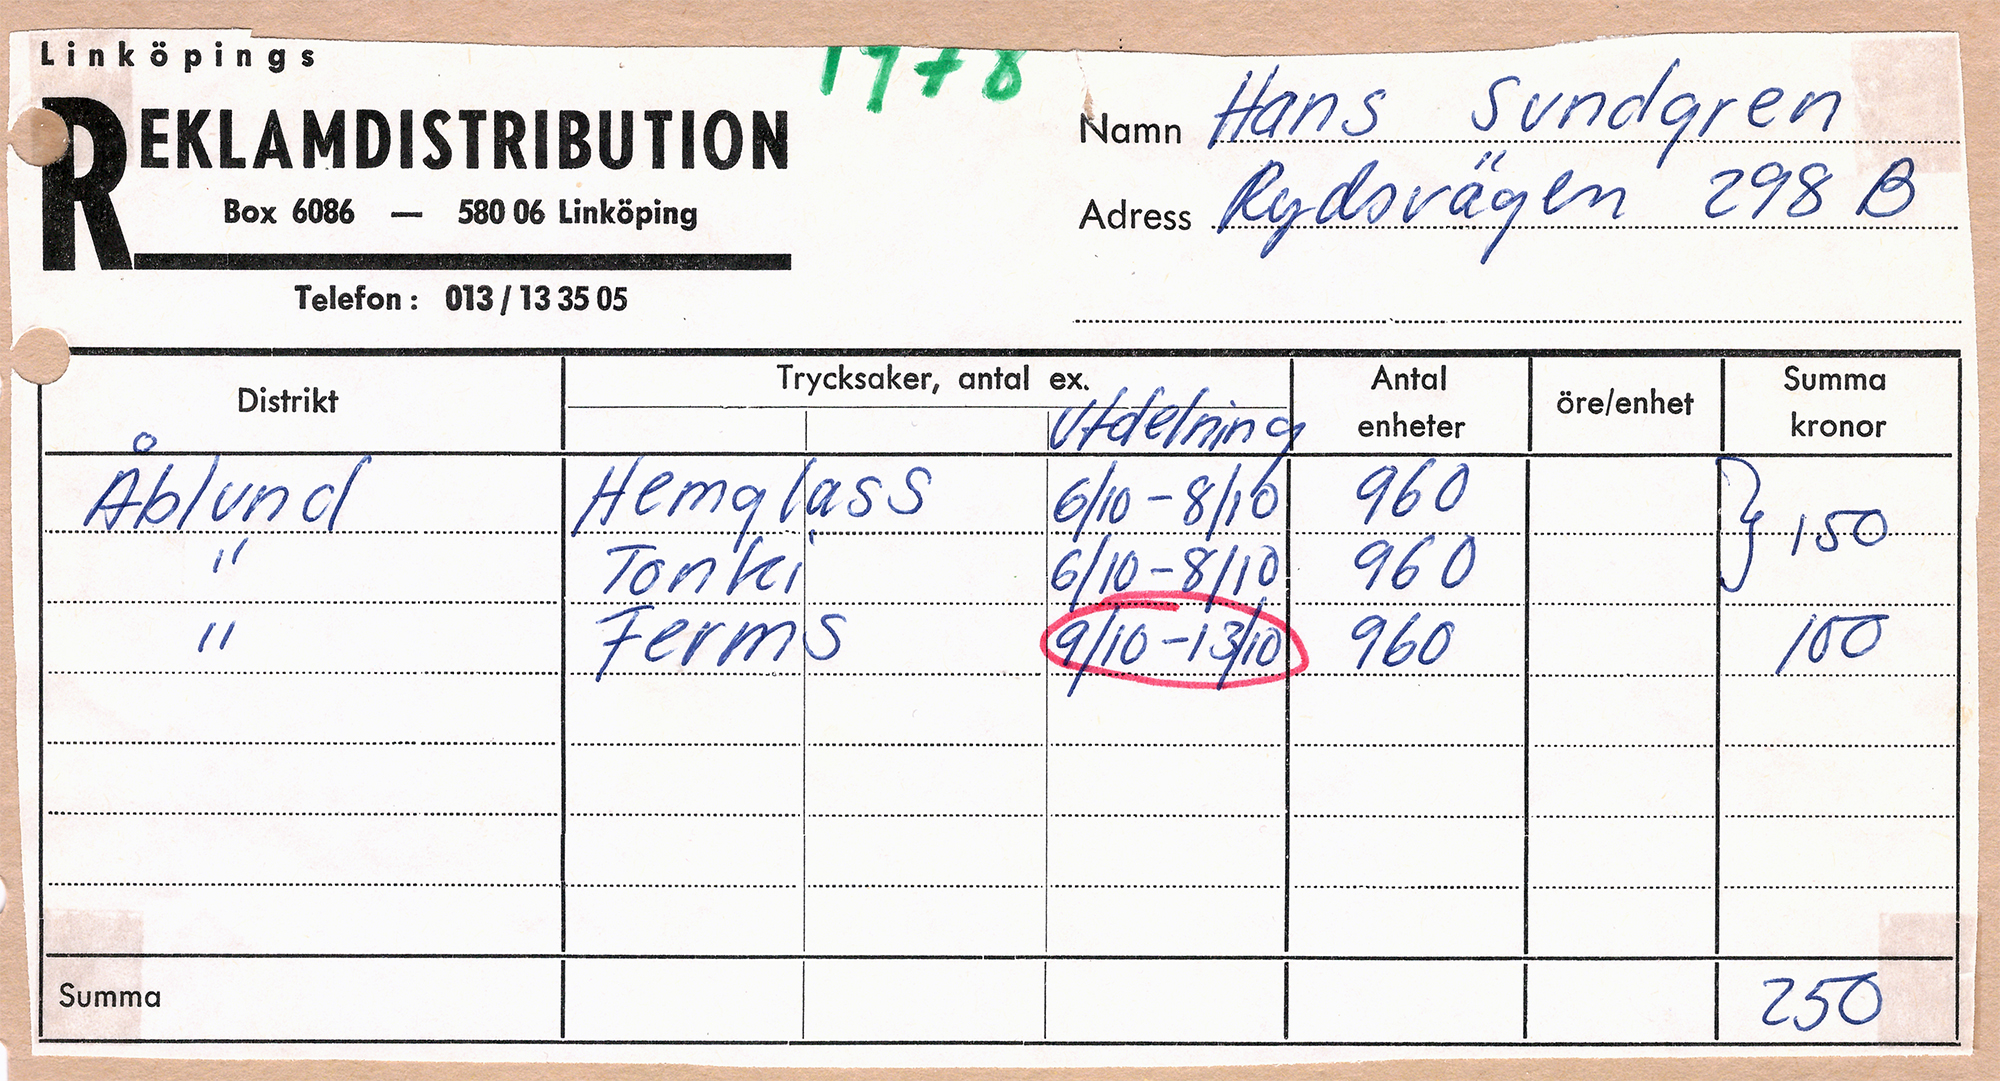 Linköpings
REKLAMDISTRIBUTION
Box 6086 — 580 06 Linköping
Telefon: 013/13 35 05
1978
Namn Hans Sundgren
Adress Rydsvägen 298 B
Distrikt
Trycksaker, antal ex.
Utdelning
Antal enheter
öre/enhet
Summa kronor
Åblund Hemglass 6/10-8/10 960
" Tonki 6/10-8/10 960 } 150
" Ferms 9/10-13/10 960 100
Summa 250